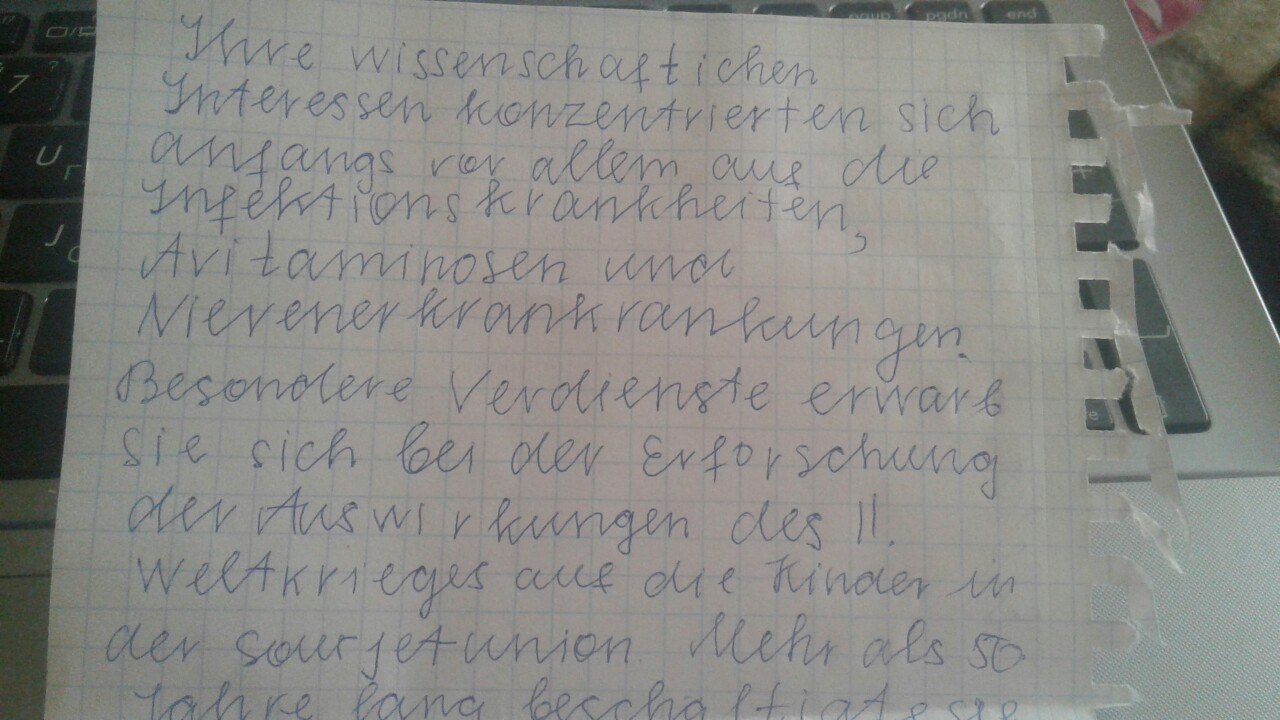 pgup pgdn end
7
U
J
Ihre wissenschaftichen
Interessen konzentrierten sich
anfangs vor allem auf die
Infektionskrankheiten,
Avitaminosen und
Nierenerkrankrankungen.
Besondere Verdienste erwarb
sie sich bei der Erforschung
der Auswirkungen des II.
Weltkrieges auf die Kinder in
der Sowjetunion. Mehr als 50
Jahre lang beschäftigte sie